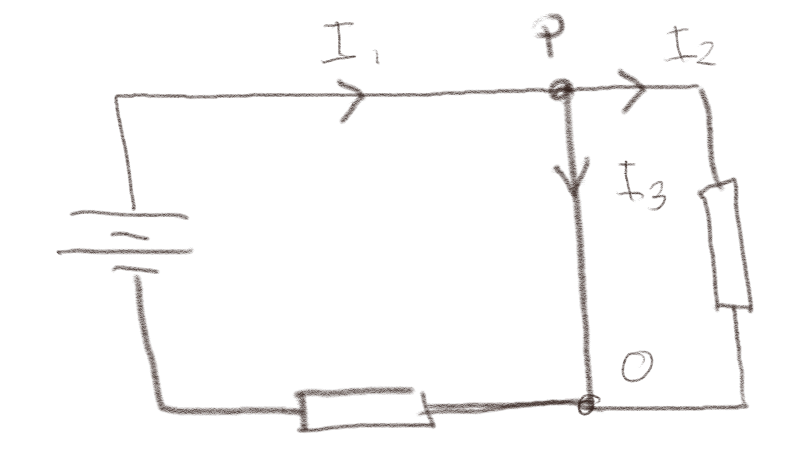 I₁
P
I₂
I₃
O